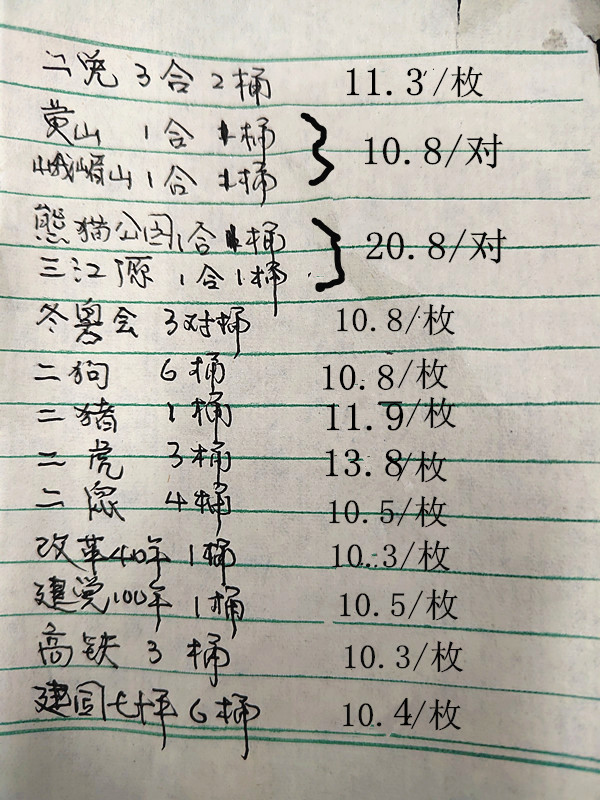 二兔 3合2桶 11.3/枚
黄山 1合1桶
峨嵋山1合1桶 10.8/对
熊猫公园1合1桶
三江源 1合1桶 20.8/对
冬奥会 3对桶 10.8/枚
二狗 6桶 10.8/枚
二猪 1桶 11.9/枚
二虎 3桶 13.8/枚
二鼠 4桶 10.5/枚
改革40年1桶 10.3/枚
建党100年 1桶 10.5/枚
高铁 3 桶 10.3/枚
建国七十年 6桶 10.4/枚